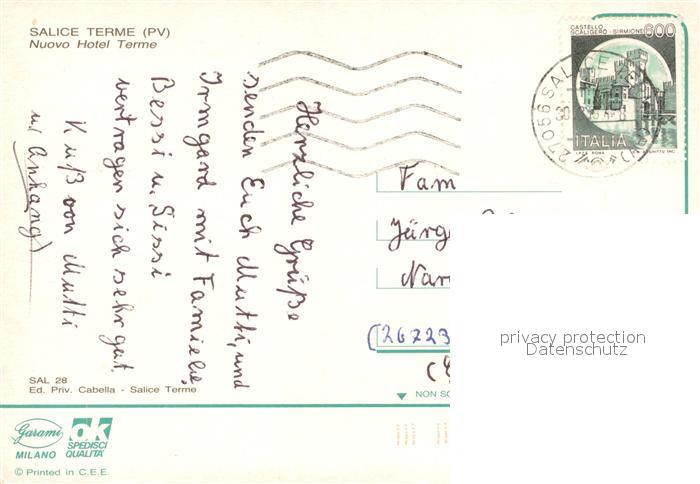 SALICE TERME (PV)
Nuovo Hotel Terme
Herzliche Grüße
senden Euch Mutti, und
Irmgard mit Familie,
Bessi u. Sissi
vertragen sich sehr gut.
Kuß von Mutti
u/ Anhang)
CASTELLO
SCALIGERO - SIRMIONE
600
ITALIA
27056 SALICE
Fam
Jürg
Nar
(26723
SAL 28
Ed. Priv. Cabella - Salice Terme
NON SC
Garami
MILANO
ok
SPEDISCI
QUALITÀ
© Printed in C.E.E.
privacy protection
Datenschutz